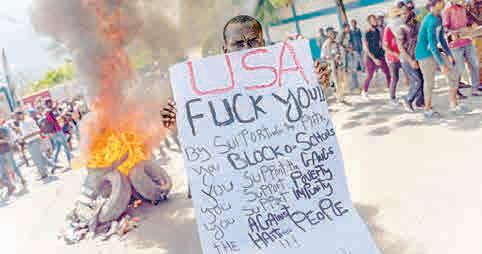 USA
FUCK YOU!!
By SUPPORTING The PHTK
YOU BLOCK OUR SCHOOLS
YOU SUPPORT the GANGS
YOU SUPPORT POVERTY
YOU SUPPORT IMPUNITY
AGAINST
THE HAITIAN PEOPLE
!!!